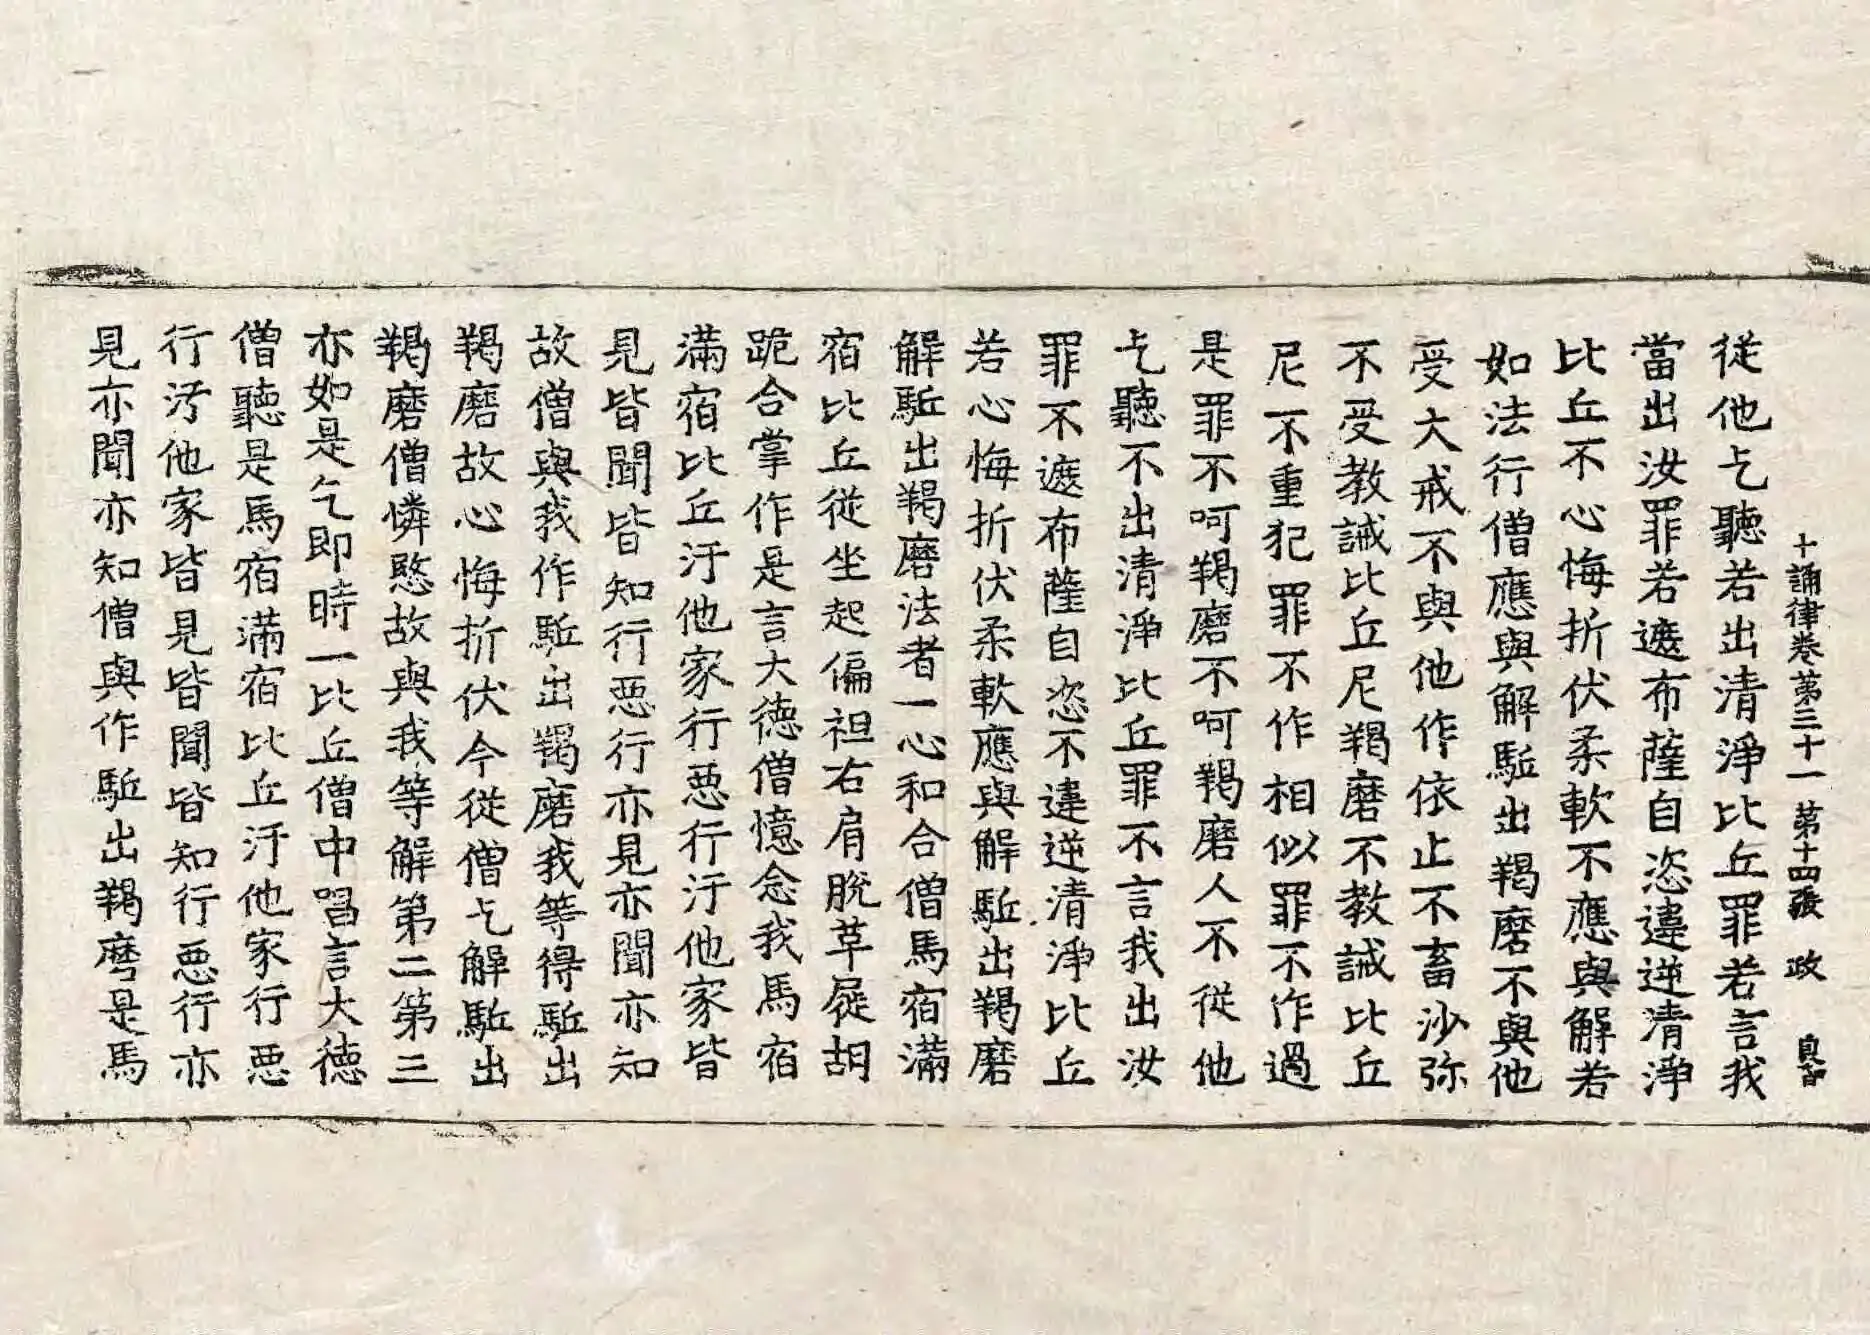 十誦律卷第三十一 第十四張 政
從他乞聽若出清淨比丘罪若言我
當出汝罪若遮布薩自恣違逆清淨
比丘不心悔折伏柔軟不應與解若
如法行僧應與解駈出羯磨不與他
受大戒不與他作依止不畜沙弥
不受教誡比丘尼羯磨不教誡比丘
尼不重犯罪不作相似罪不作過
是罪不呵羯磨不呵羯磨人不從他
乞聽不出清淨比丘罪不言我出汝
罪不遮布薩自恣不違逆清淨比丘
若心悔折伏柔軟應與解駈出羯磨
解駈出羯磨法者一心和合僧馬宿滿
宿比丘從坐起偏袒右肩脫草屣胡
跪合掌作是言大德僧憶念我馬宿
滿宿比丘汙他家行惡行汙他家皆
見皆聞皆知行惡行亦見亦聞亦知
故僧與我作駈出羯磨我等得駈出
羯磨故心悔折伏今從僧乞解駈出
羯磨僧憐愍故與我等解第二第三
亦如是乞即時一比丘僧中唱言大德
僧聽是馬宿滿宿比丘汙他家行惡
行汙他家皆見皆聞皆知行惡行亦
見亦聞亦知僧與作駈出羯磨是馬